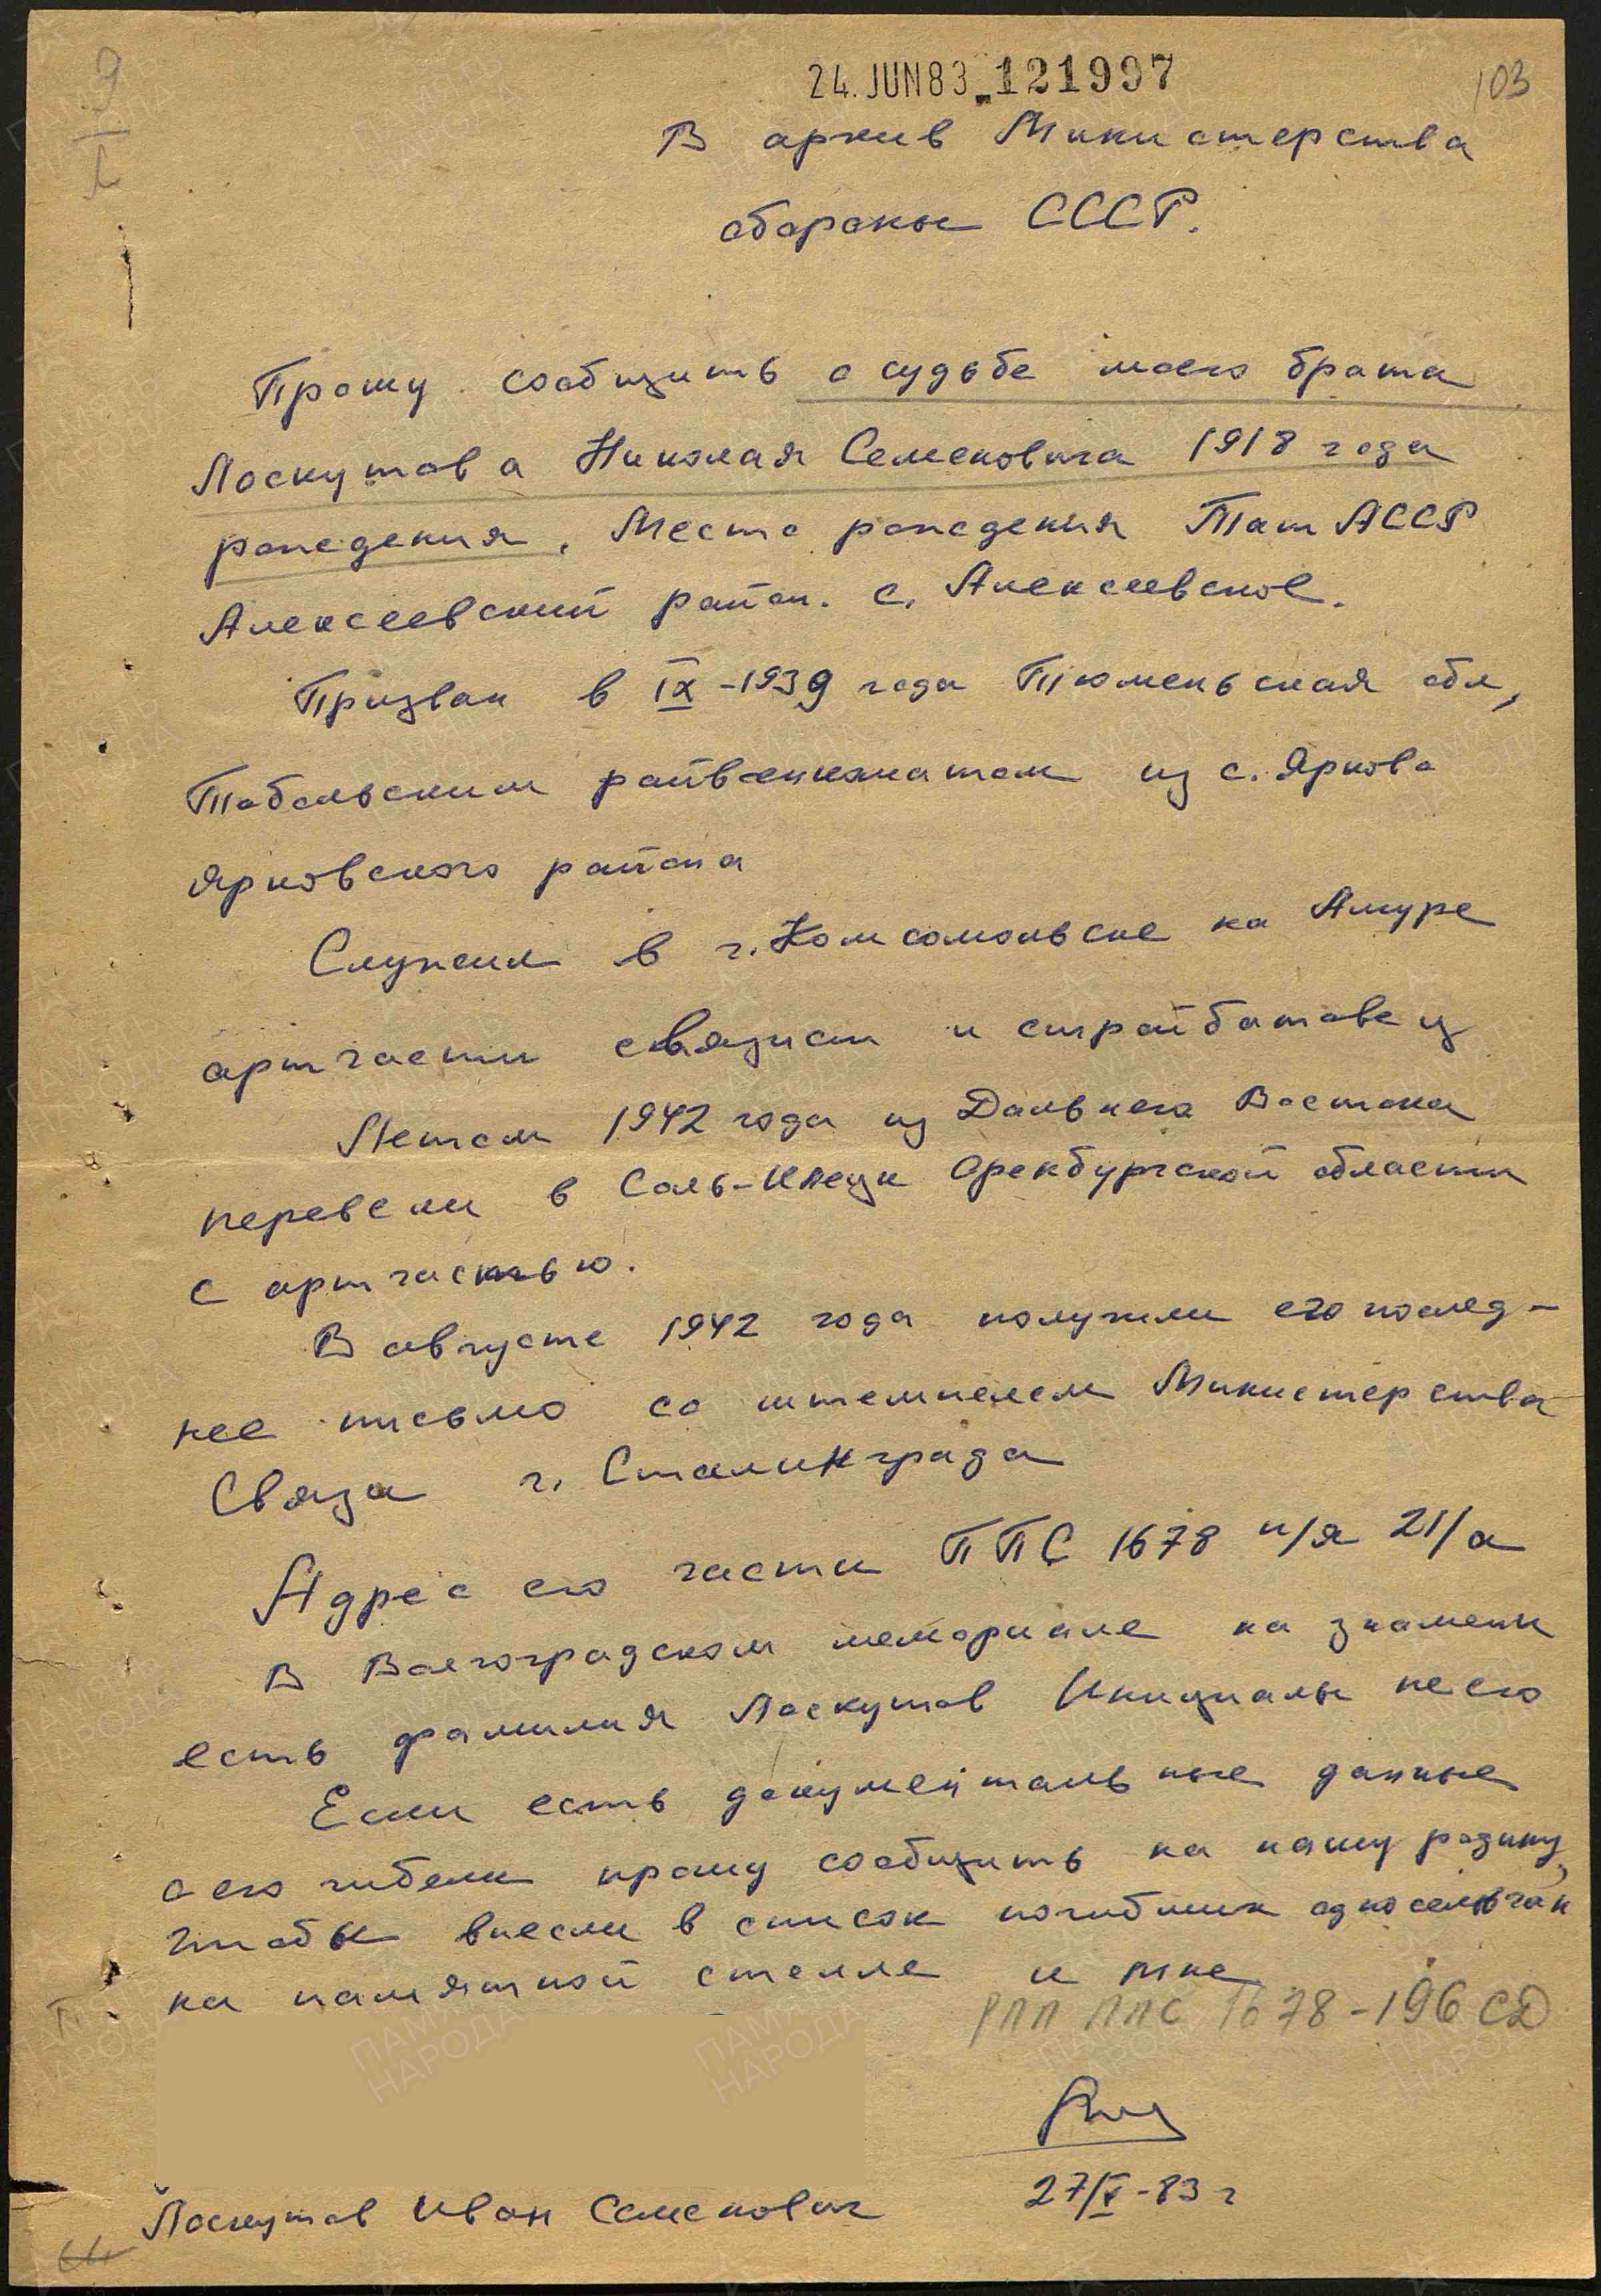 9
103
24.JUN83 121997
В архив Министерства
обороны СССР.
Прошу сообщить о судьбе моего брата
Лоскутова Николая Семеновича 1918 года
рождения, Место рождения Тат АССР
Алексеевский район. с. Алексеевское.
Призван в IX-1939 года Тюменьская обл,
Тобольским райвоенкоматом из с. Ярково
Ярковского района
Служил в г. Комсомольске на Амуре
артчасти связист и стройбатовец
Летом 1942 года из Дальнего Востока
перевели в Соль-Илецк Оренбургской области
с артчастью.
В августе 1942 года получили его послед-
нее письмо со штемпелем Министерства
Связи г. Сталинграда
Адрес его части ППС 1678 п/я 21/а
В Волгоградском мемориале на знамени
есть фамилия Лоскутов Инициалы не его
Если есть документальные данные
о его гибели прошу сообщить на нашу родину,
чтобы внесли в список погибших односельчан
на памятной стелле и мне
ППС 1678-196 СД
27/V-83 г
Лоскутов Иван Семенович
ПАМЯТЬ НАРОДА